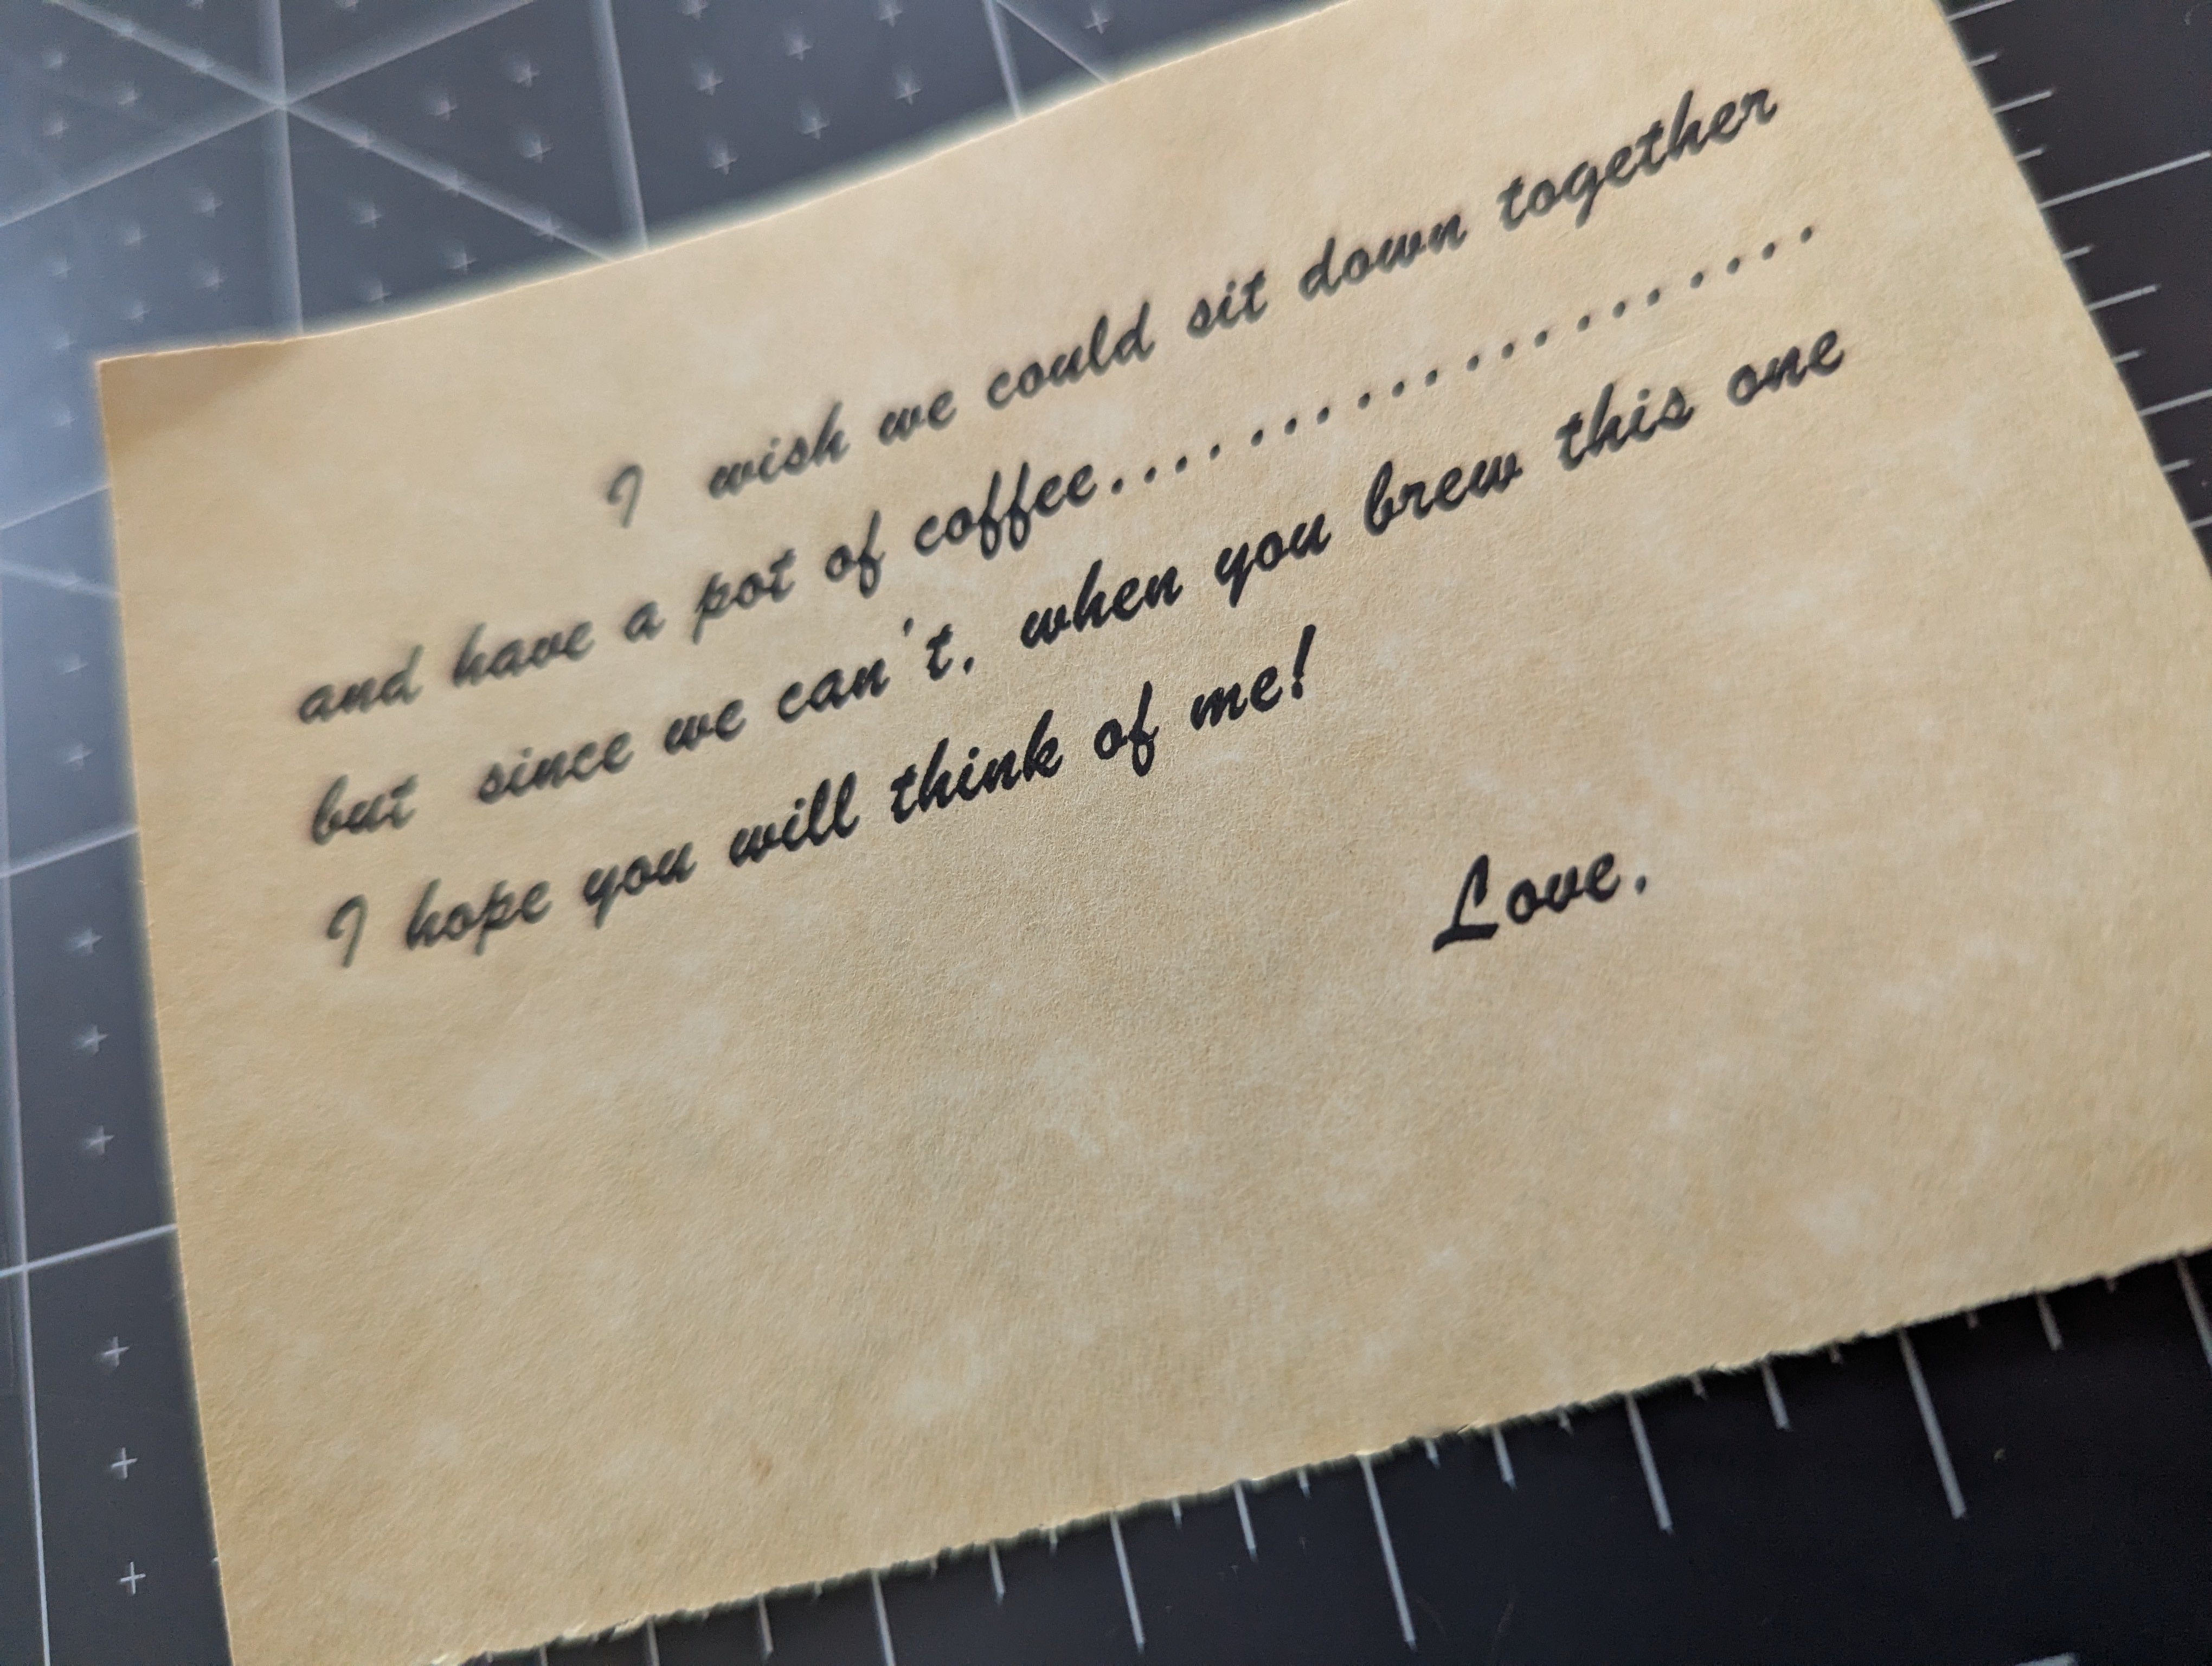 I wish we could sit down together
and have a pot of coffee....................
but since we can't, when you brew this one
I hope you will think of me!
Love,